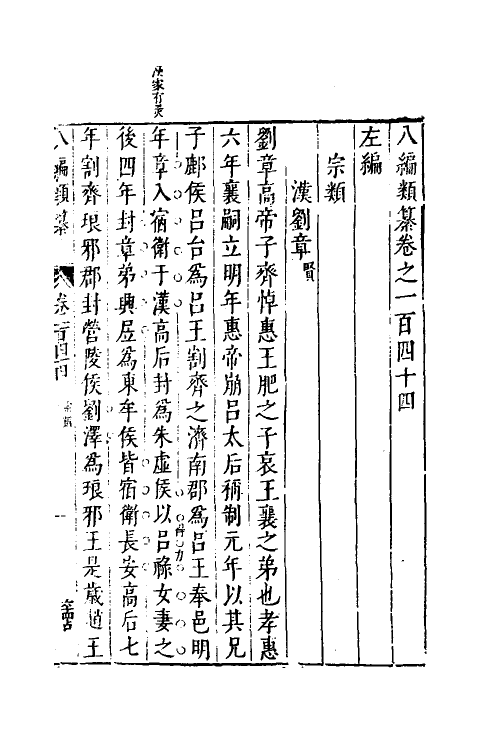 八編類纂卷之一百四十四
左編
宗類
漢劉章賢
劉章高帝子齊悼惠王肥之子哀王襄之弟也孝惠
六年襄嗣立明年惠帝崩呂太后稱制元年以其兄
子鄜侯呂台爲呂王割齊之濟南郡爲呂王奉邑明
年章入宿衛于漢高后封爲朱虛侯以呂祿女妻之
後四年封章弟興居爲東牟侯皆宿衛長安高后七
年割齊琅邪郡封營陵侯劉澤爲琅邪王是歲趙王
八編類纂
卷一百四十四
宗類
一